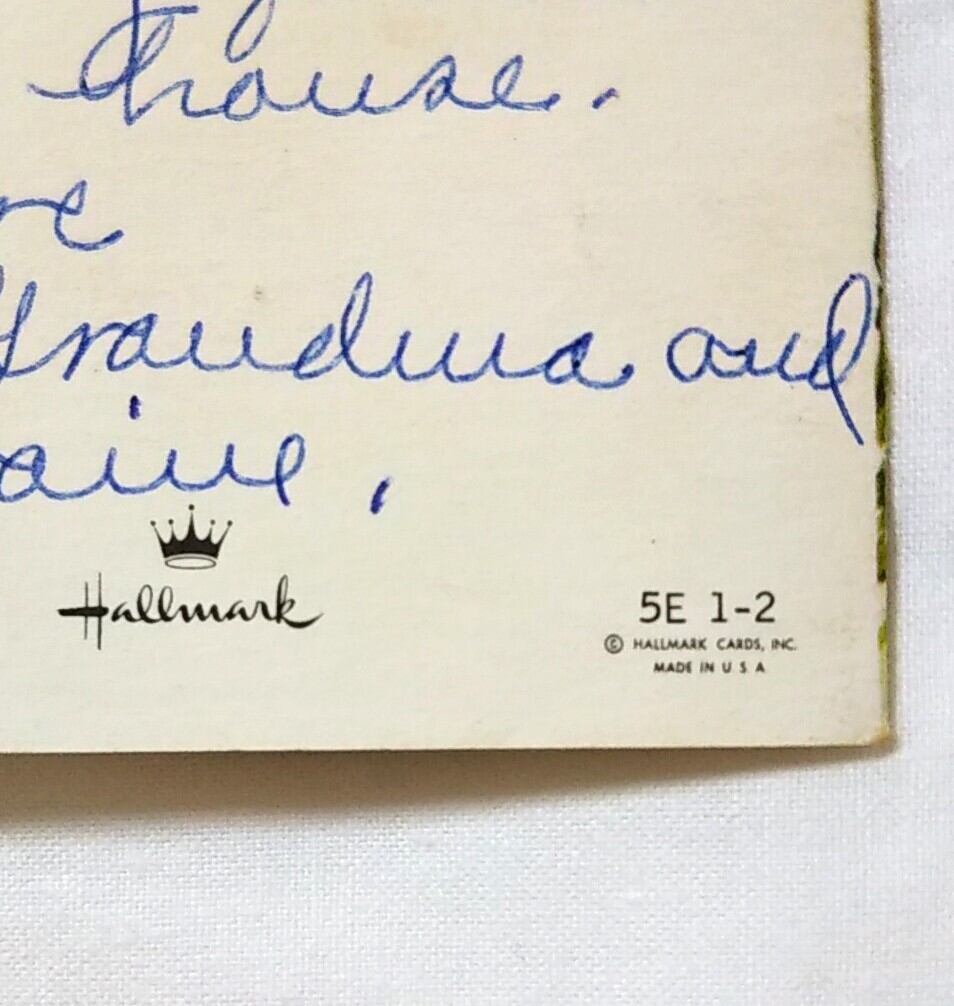 house.
Grandma and
Hallmark
5E 1-2
© HALLMARK CARDS, INC.
MADE IN U S A